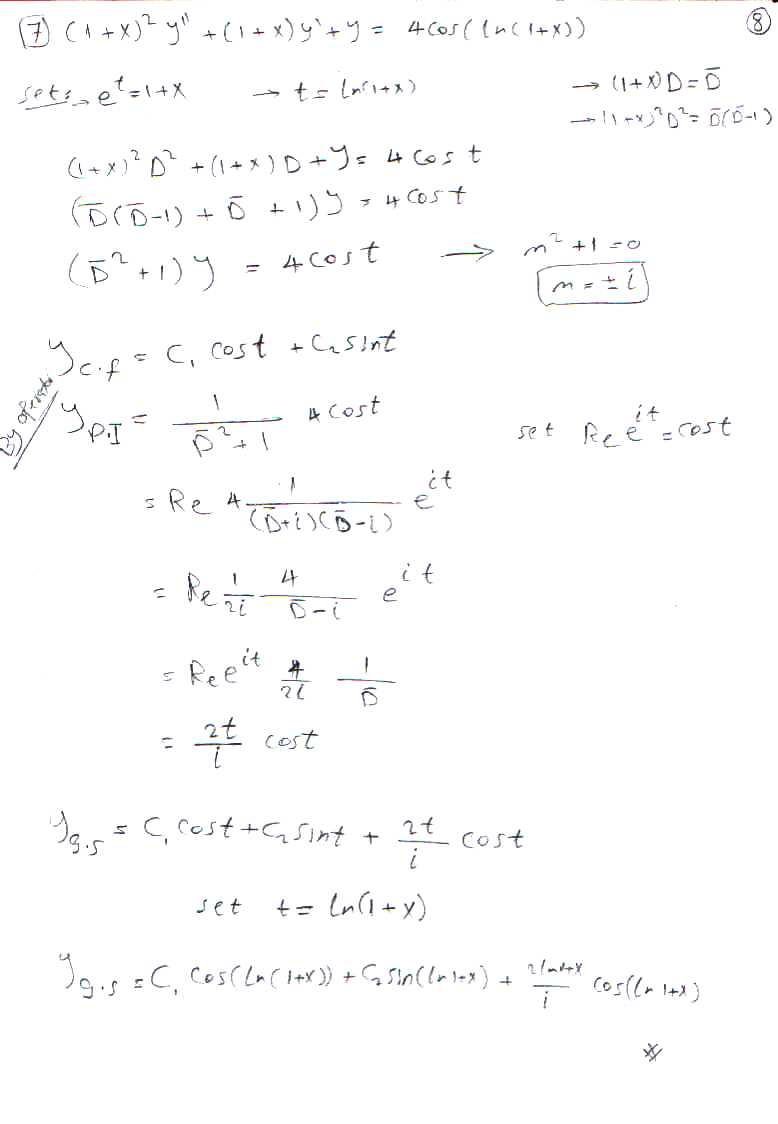 7 (1+x)² y'' + (1+x) y' + y = 4 cos(ln(1+x)) 8
sets → e^t = 1+x → t = ln(1+x) → (1+x)D = D̄
→ (1+x)²D² = D̄(D̄-1)
(1+x)² D² + (1+x) D + y = 4 cos t
(D̄(D̄-1) + D̄ + 1) y = 4 cos t
(D̄² + 1) y = 4 cos t → m² + 1 = 0
m = ± i
y_c.f = C₁ cos t + C₂ sin t
By operator
y_P.I = 1/(D̄² + 1) 4 cos t set Re e^{it} = cos t
= Re 4 1/((D̄+i)(D̄-i)) e^{it}
= Re 1/2i 4/(D̄-i) e^{it}
= Re e^{it} 4/2i 1/D̄
= 2t/i cos t
y_g.s = C₁ cos t + C₂ sin t + 2t/i cos t
set t = ln(1+x)
y_g.s = C₁ cos(ln(1+x)) + C₂ sin(ln 1+x) + 2 ln 1+x/i cos(ln 1+x)